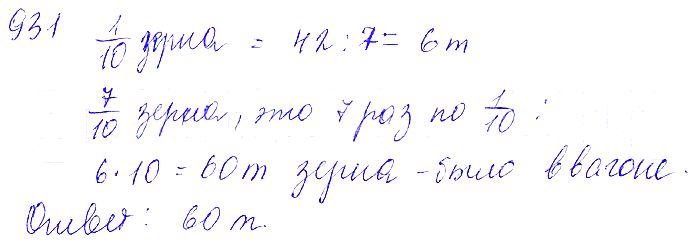 931 1/10 зерна = 42 : 7 = 6 т
7/10 зерна, это 7 раз по 1/10 :
6 · 10 = 60 т зерна - было в вагоне.
Ответ: 60 т.